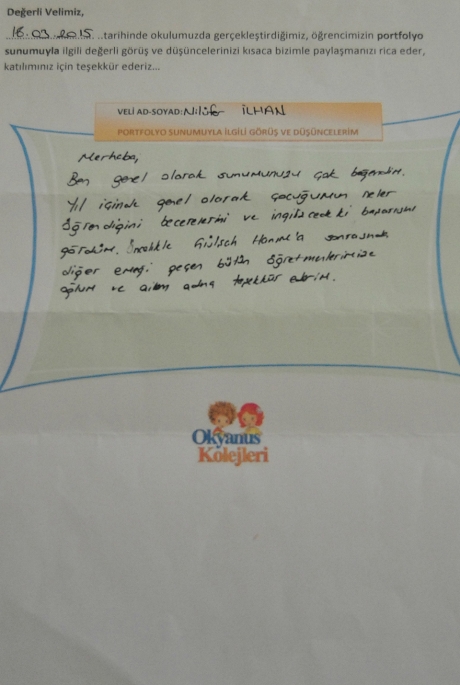 Değerli Velimiz,
18.03.2015 tarihinde okulumuzda gerçekleştirdiğimiz, öğrencimizin portfolyo
sunumuyla ilgili değerli görüş ve düşüncelerinizi kısaca bizimle paylaşmanızı rica eder,
katılımınız için teşekkür ederiz...
VELİ AD-SOYAD: Nilüfer İLHAN
PORTFOLYO SUNUMUYLA İLGİLİ GÖRÜŞ VE DÜŞÜNCELERİM
Merhaba,
Ben genel olarak sunumunuzu çok beğendim.
Yıl içinde genel olarak çocuğumun neler
öğrendiğini becerelerini ve ingilizcedeki başarısını
gördüm. Öncelikle Hanım'a sonrasında
diğer emeği geçen bütün öğretmenlerimize
oğlum ve ailem adına teşekkür ederim.
Okyanus
Kolejleri